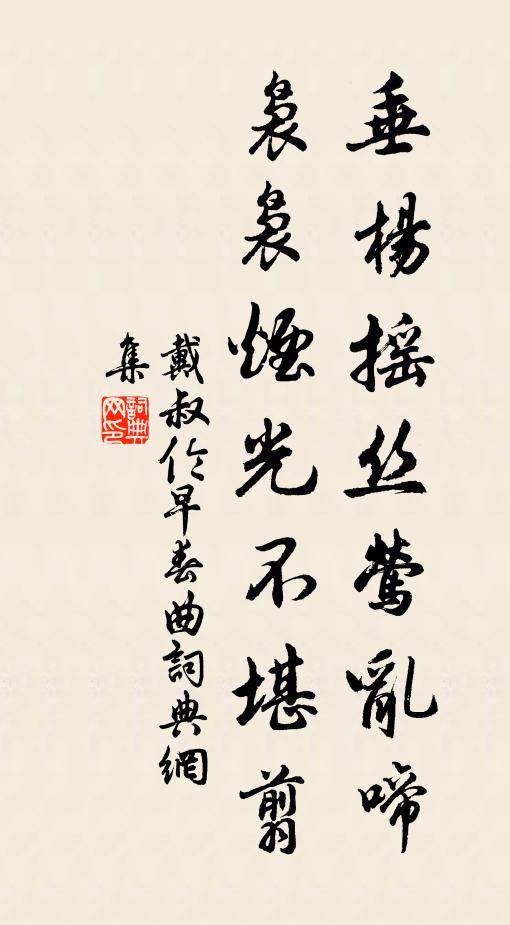 垂楊摇丝鶯亂啼
袅袅煙光不堪翦
戴叔伦早春曲詞典網
集
詞典网印